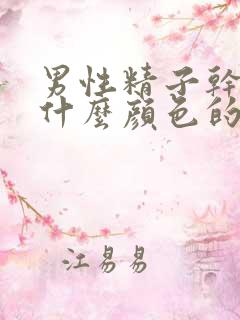 男性精子幹
什麼顏色的
江易易